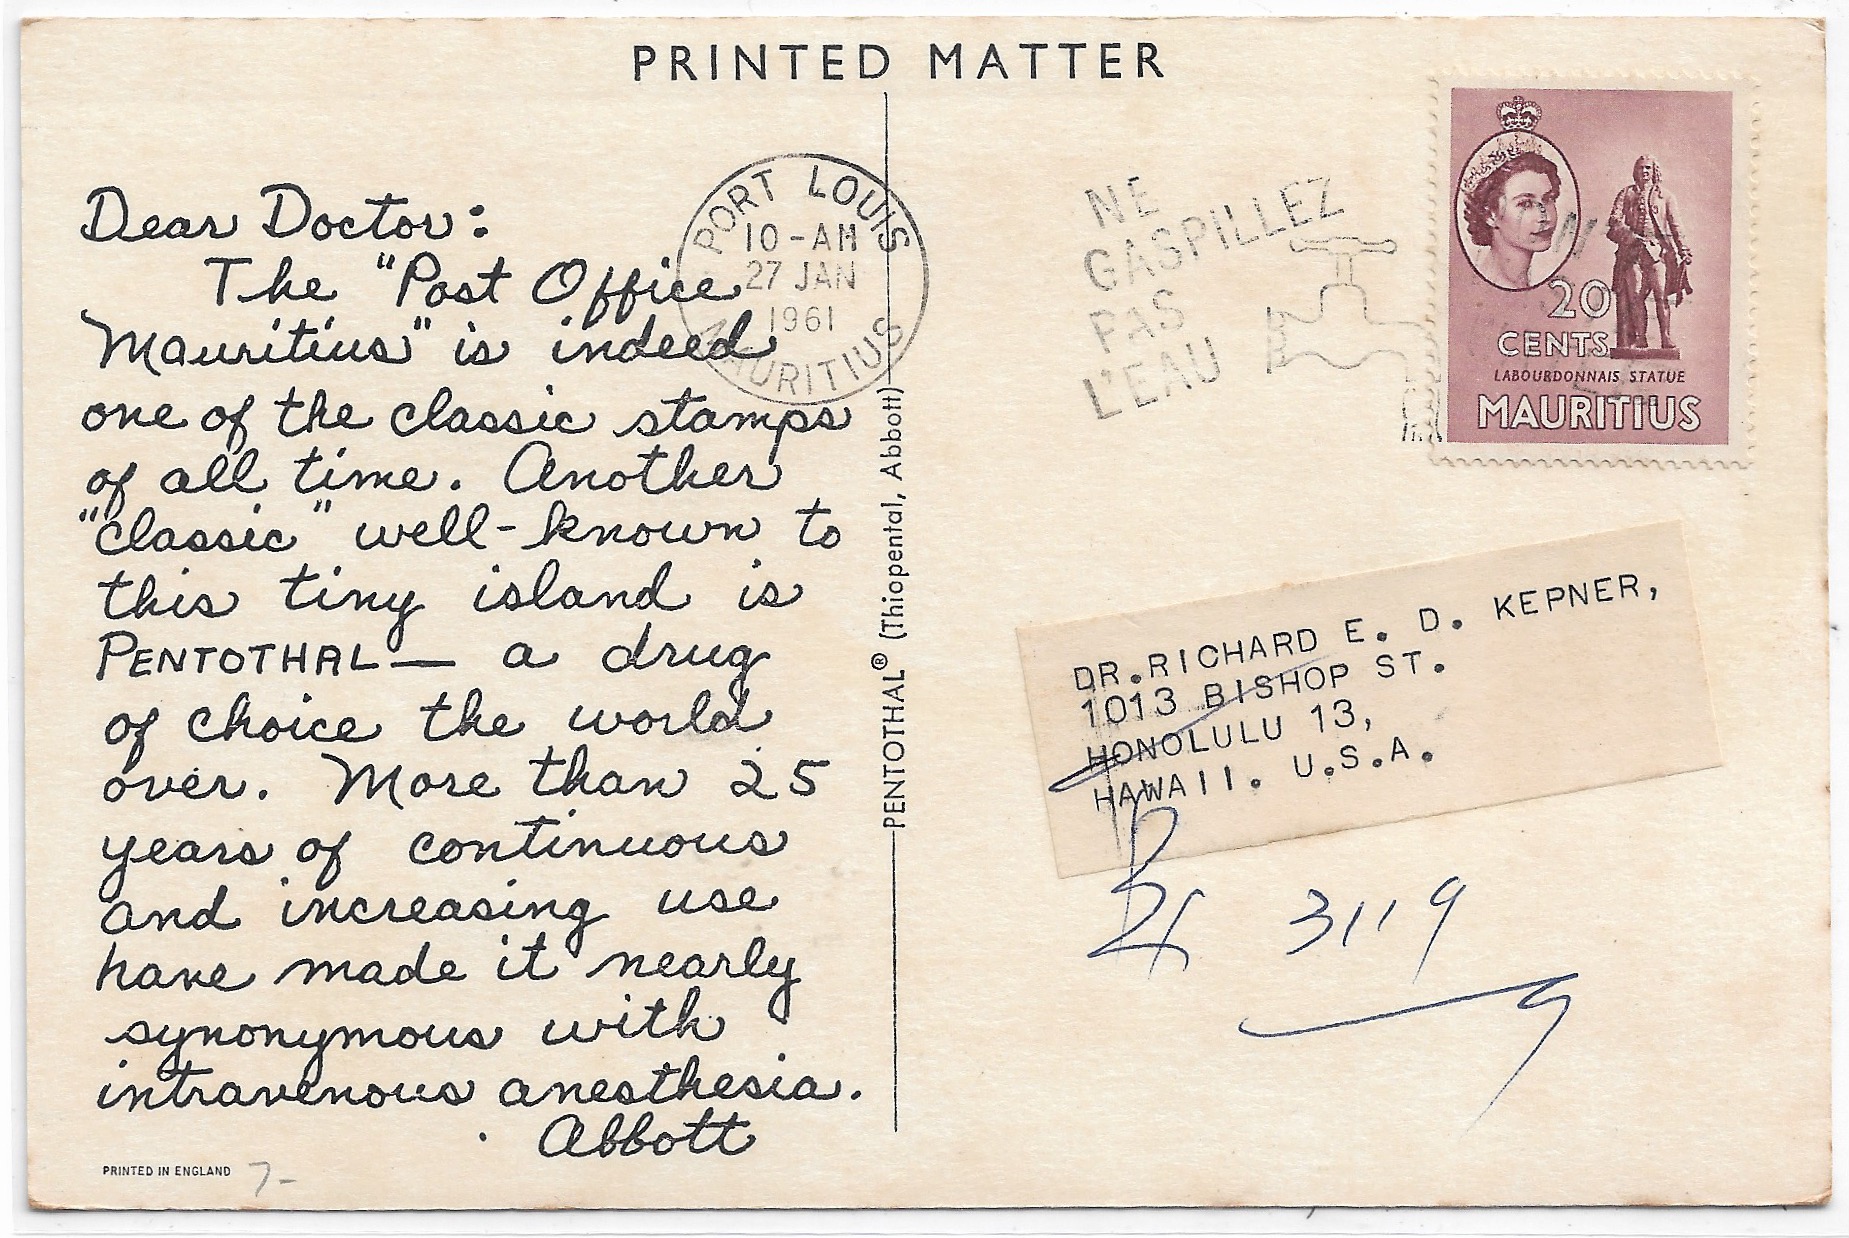 PRINTED MATTER
Dear Doctor:
The "Post Office
Mauritius" is indeed
one of the classic stamps
of all time. Another
"classic" well-known to
this tiny island is
PENTOTHAL — a drug
of choice the world
over. More than 25
years of continuous
and increasing use
have made it nearly
synonymous with
intravenous anesthesia.
Abbott
PRINTED IN ENGLAND
7-
PENTOTHAL® (Thiopental, Abbott)
PORT LOUIS
10-AM
27 JAN
1961
MAURITIUS
NE
GASPILLEZ
PAS
L'EAU
20
CENTS
LABOURDONNAIS STATUE
MAURITIUS
DR.RICHARD E. D. KEPNER,
1013 BISHOP ST.
HONOLULU 13,
HAWAII. U.S.A.
3119